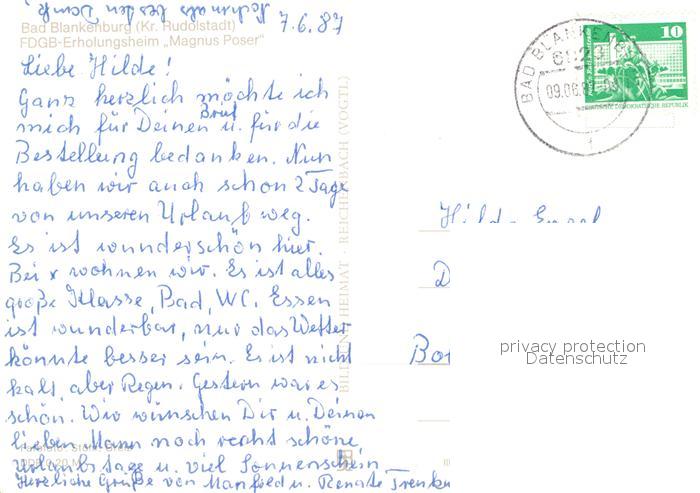 Nochmals besten Dank
7.6.87
Bad Blankenburg (Kr. Rudolstadt)
FDGB-Erholungsheim „Magnus Poser“
Liebe Hilde!
Ganz herzlich möchte ich
mich für Deinen Brief u. für die
Bestellung bedanken. Nun
haben wir auch schon 2 Tage
von unseren Urlaub weg.
Es ist wunderschön hier.
Bei x wohnen wir. Es ist alles
große Klasse, Bad, WC. Essen
ist wunderbar, nur das Wetter
könnte besser sein. Es ist nicht
kalt, aber Regen. Gestern war es
schön. Wir wünschen Dir u. Deinen
lieben Mann noch recht schöne
Urlaubstage u. viel Sonnenschein
Herzliche Grüße von Manfred u. Renate
BILD UND HEIMAT · REICHENBACH (VOGTL)
BAD BLANKENBURG
09.06.8
10
DEUTSCHE DEMOKRATISCHE REPUBLIK
Hilde
privacy protection
Datenschutz